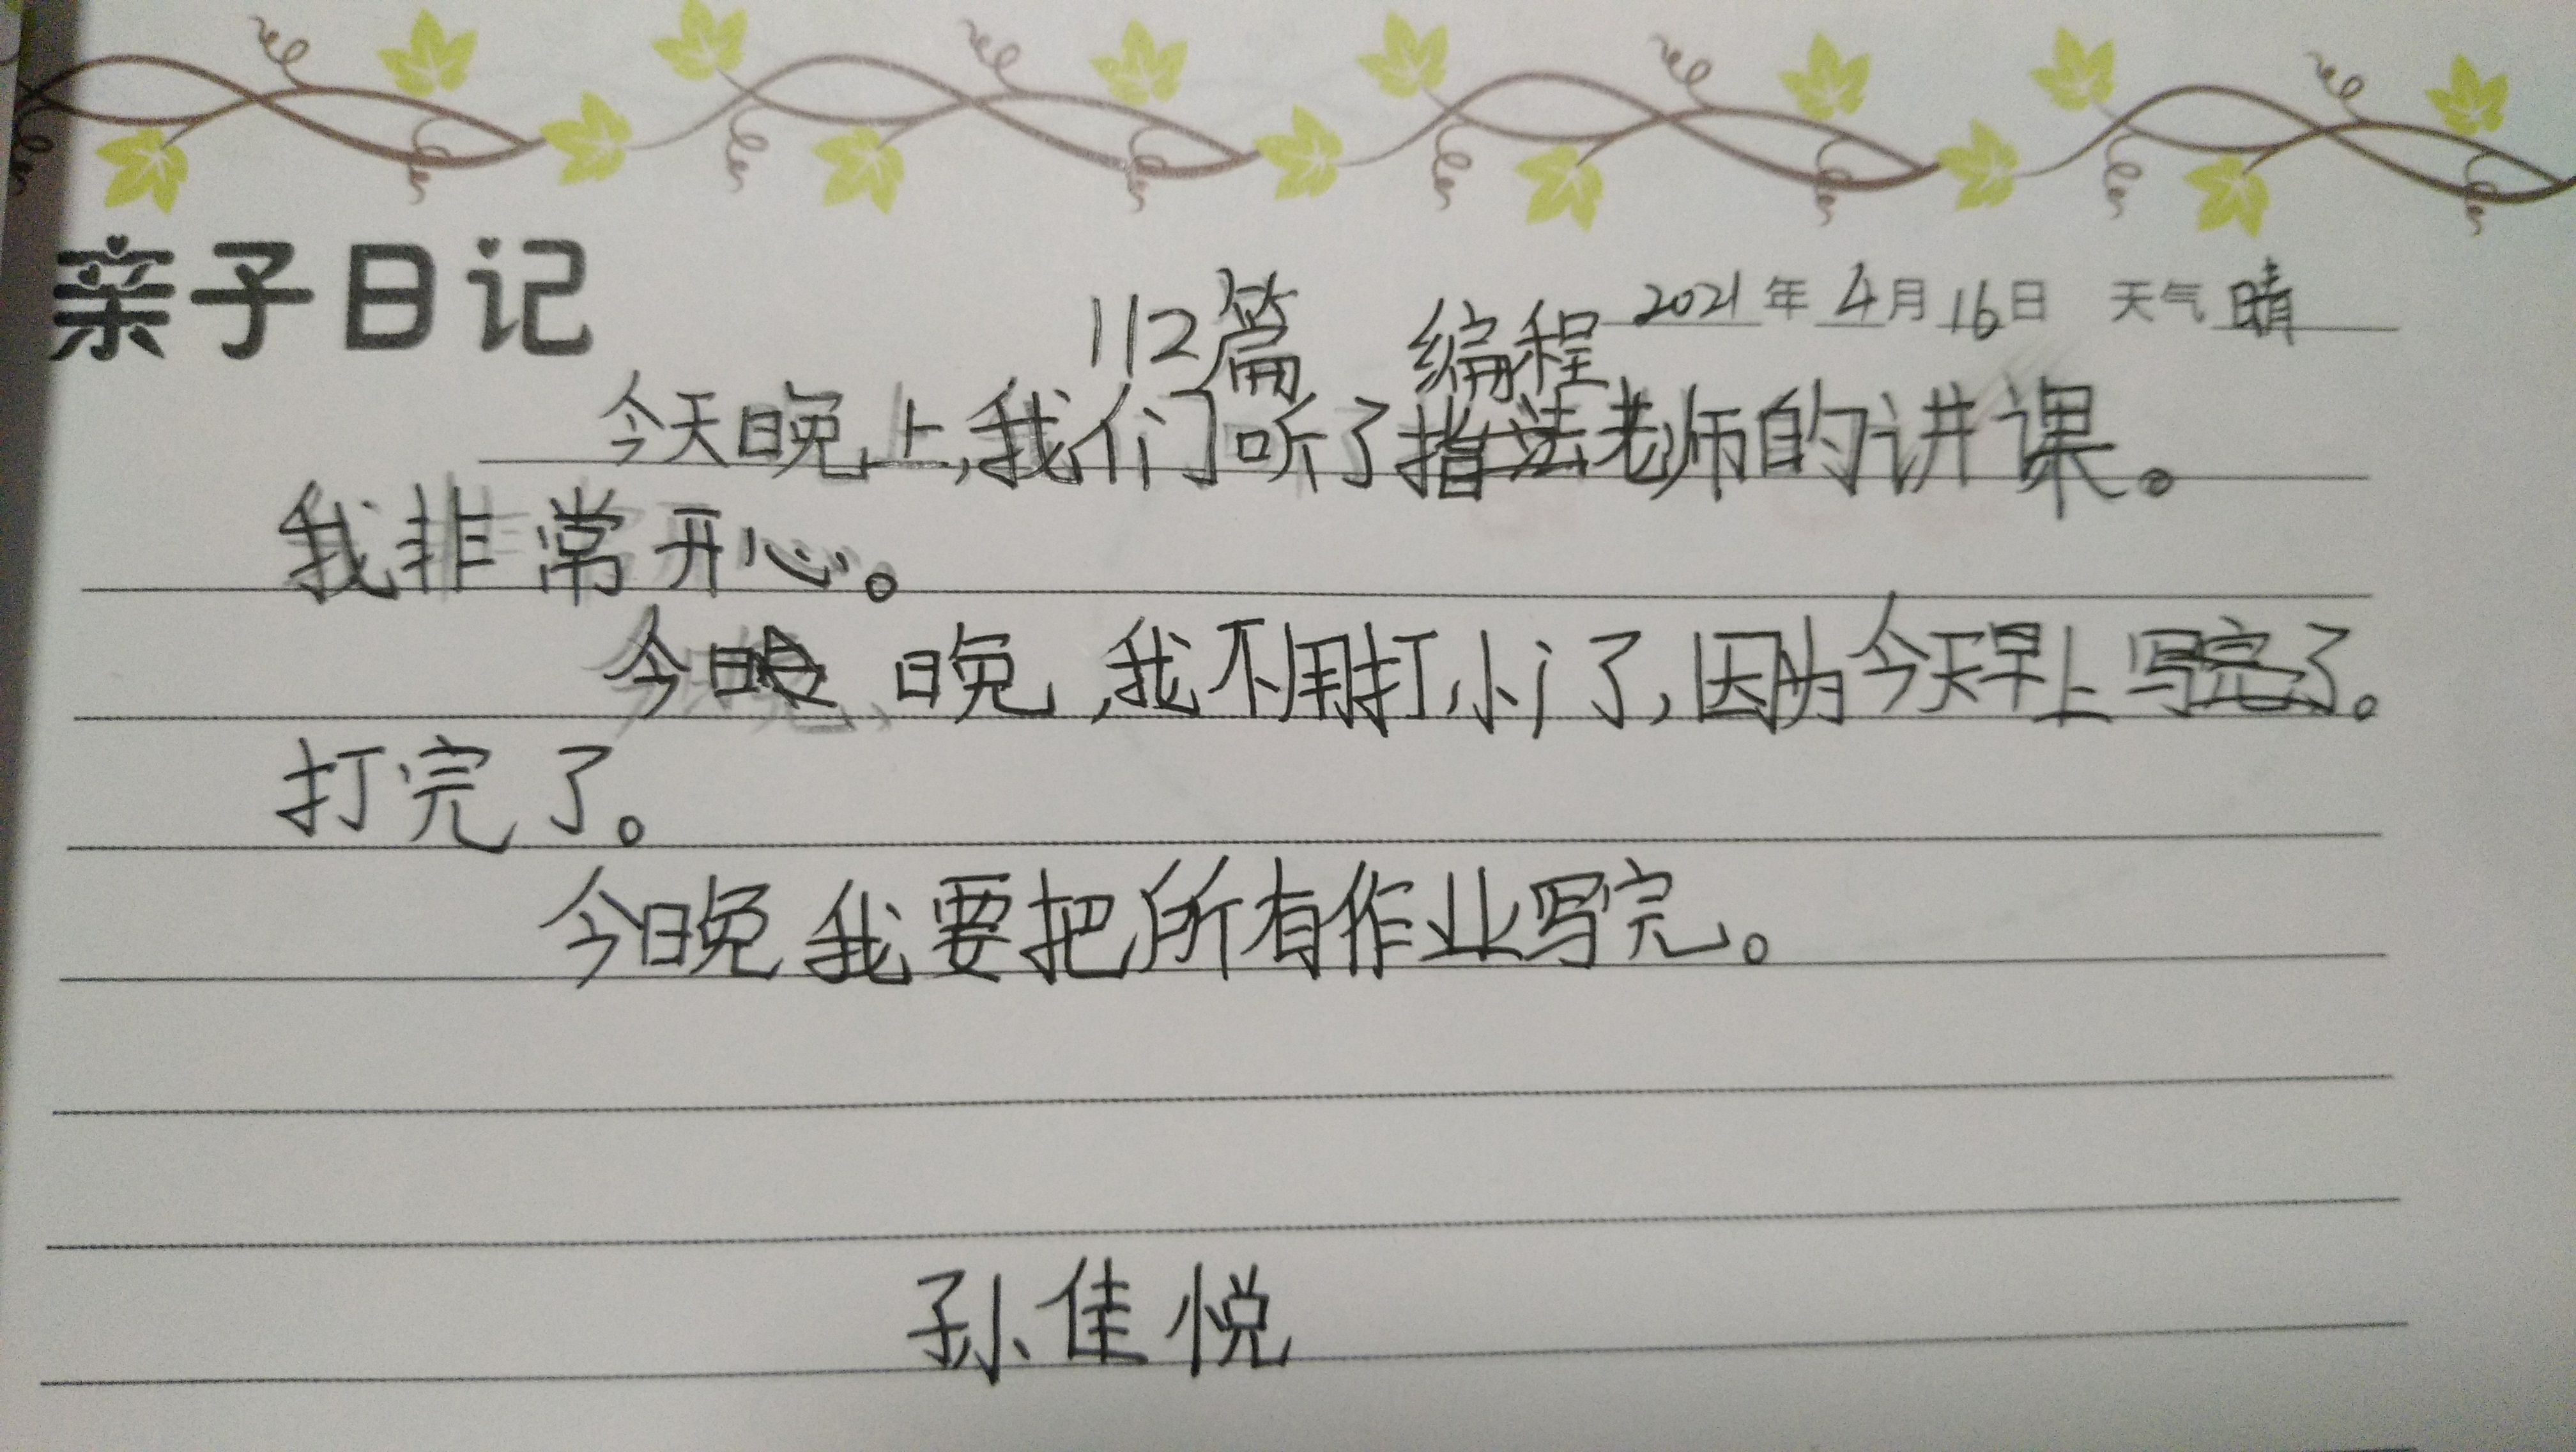 亲子日记
112篇 编程 2021年4月16日 天气 晴
今天晚上,我们听了指法老师的讲课。
我非常开心。
今晚,我不用打小门了,因为今天早上写完了。
打完了。
今晚我要把所有作业写完。
孙佳悦